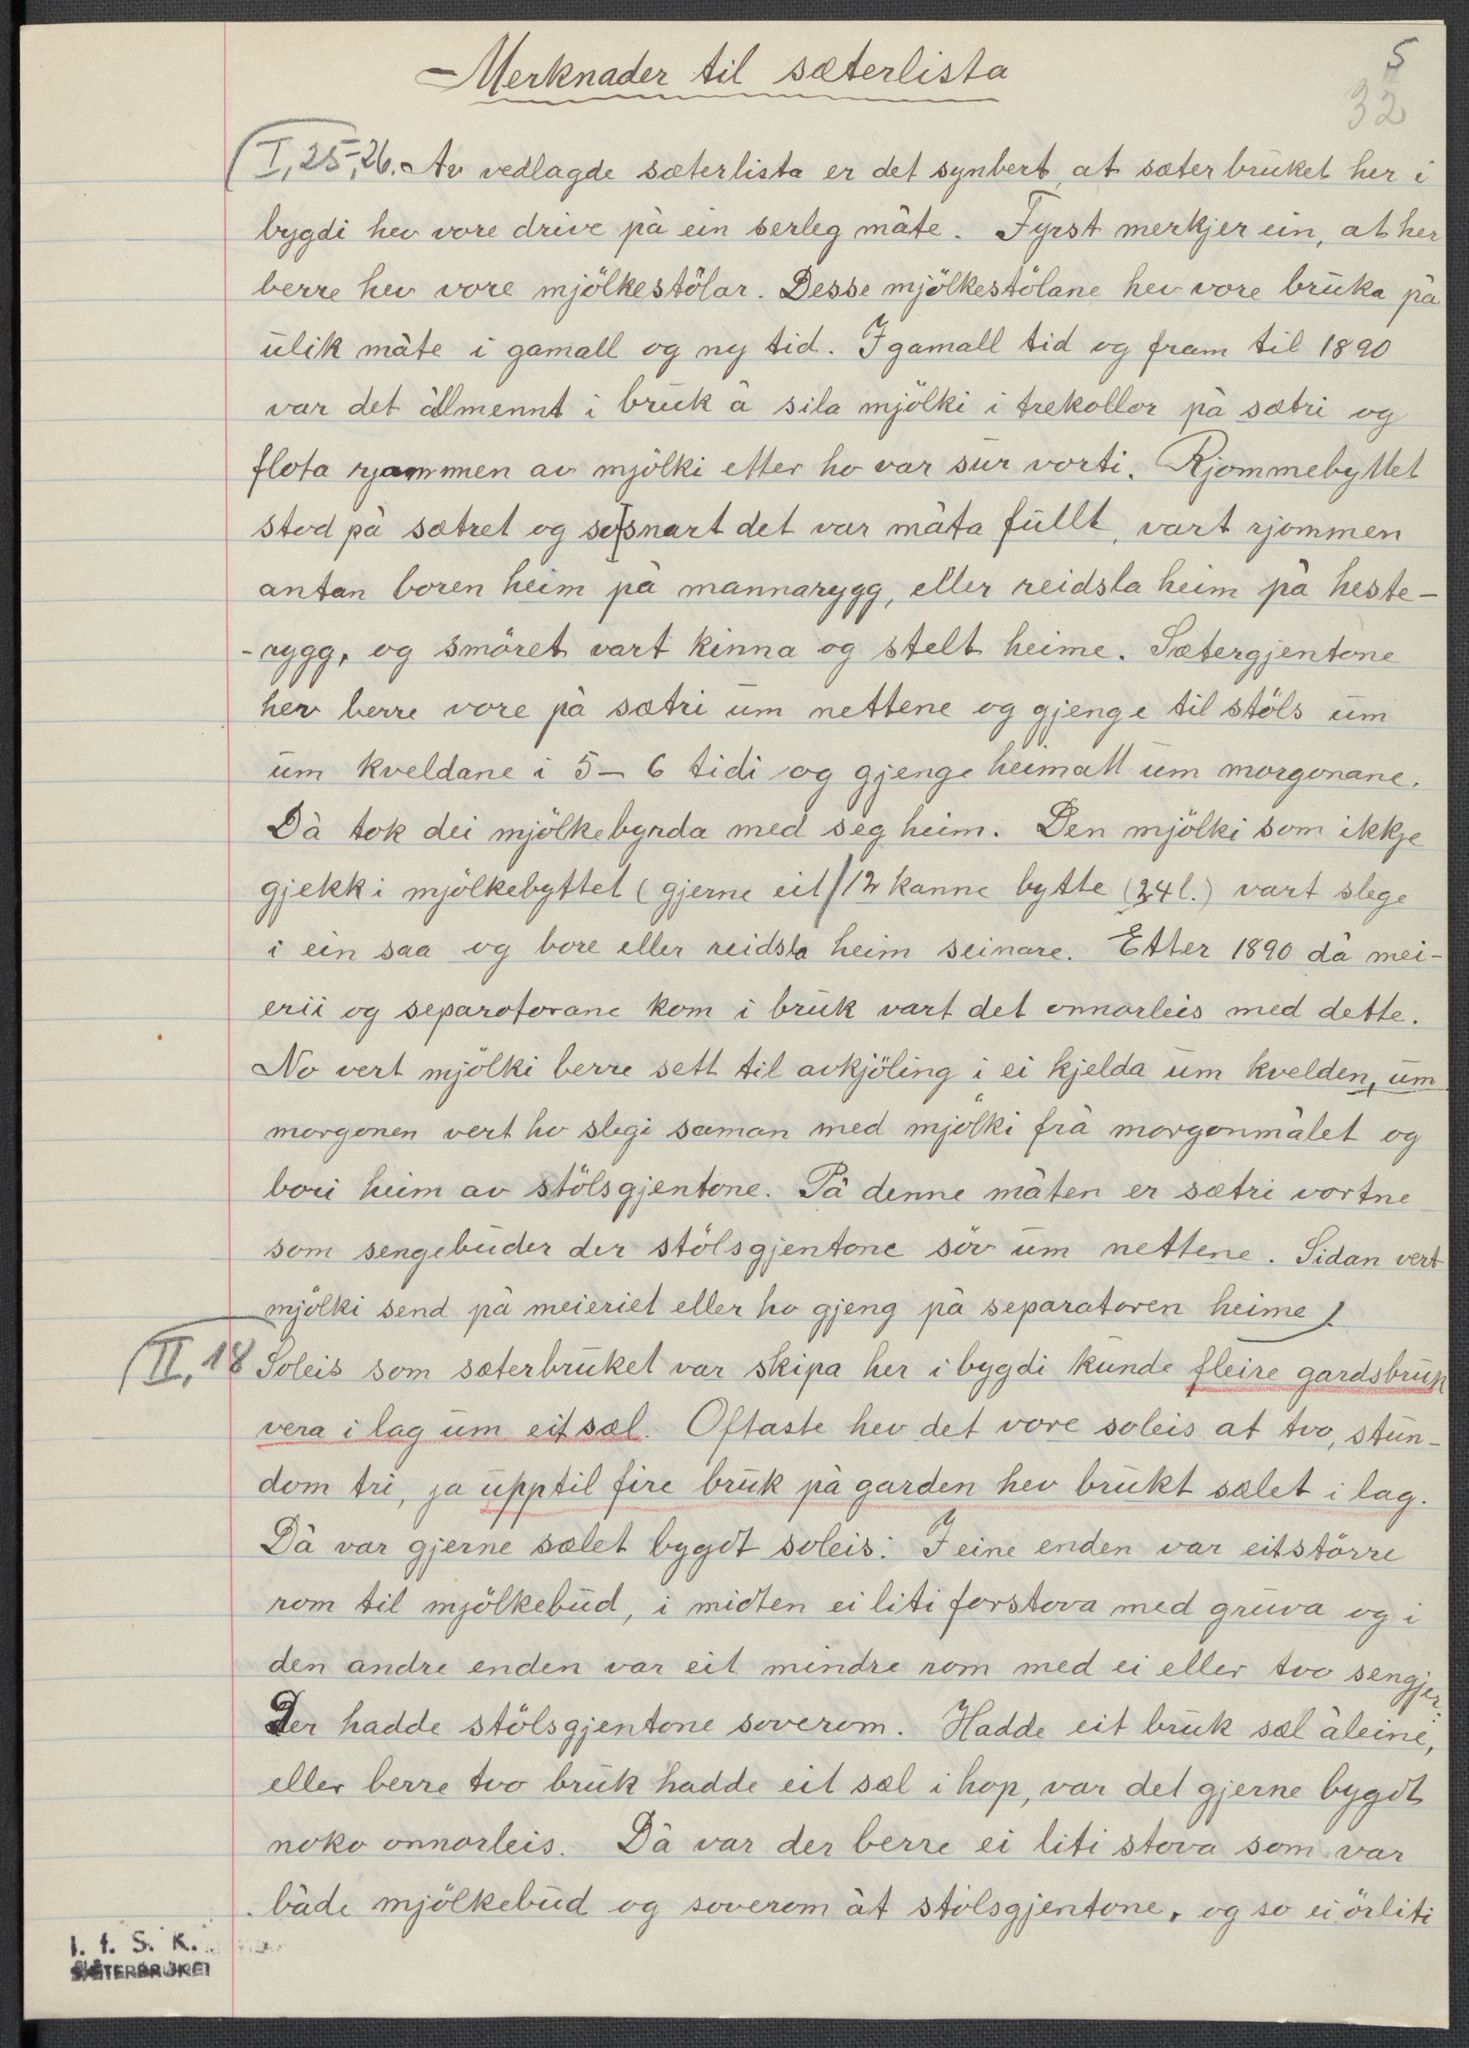 Merknader til sæterlista
5
32
(I, 25-, 26. Av vedlagde sæterlista er det synbert at sæterbruket her i
bygdi hev vore drive på ein serleg måte. Fyrst merkjer ein, at her
berre hev vore mjölkestölar. Desse mjölkestölane hev vore bruka på
ulik måte i gamall og ny tid. I gamall tid og fram til 1890
var det ållmennt i bruk å sila mjölki i trekollor på sætri og
flota rjommen av mjölki etter ho var sur vorti. Rjommebyttet
stod på sætret og so snart det var måta fullt, vart rjommen
antan boren heim på mannarygg, eller reidsla heim på heste-
-rygg, og smöret vart kinna og stelt heime. Sætergjentone
hev berre vore på sætri um nettene og gjenge til stöls um
um kveldane i 5-6 tidi og gjenge heimatt um morgonane.
Då tok dei mjölkebyrda med seg heim. Den mjölki som ikkje
gjekk i mjölkebyttet (gjerne eit/12 kanne bytte (24 l.) vart slege
i ein saa og bore eller reidsla heim seinare. Etter 1890 då mei-
erii og separatorane kom i bruk vart det onnorleis med dette.
No vert mjölki berre sett til avkjöling i ei kjelda um kvelden, um
morgonen vert ho slegi saman med mjölki frå morgonmålet og
bori heim av stölsgjentone. På denne måten er sætri vortne
som sengebuder der stölsgjentone söv um nettene. Sidan vert
mjölki send på meieriet eller ho gjeng på separatoren heime).
(II, 18 Soleis som sæterbruket var skipa her i bygdi kunde fleire gardsbruk
vera i lag um eit sæl. Oftaste hev det vore soleis at tvo, stun-
dom tri, ja upptil fire bruk på garden hev brukt sælet i lag.
Då var gjerne sælet bygdt soleis: I eine enden var eit större
rom til mjölkebud, i midten ei liti forstova med gruva og i
den andre enden var eit mindre rom med ei eller tvo sengjer.
Der hadde stölsgjentone soverom. Hadde eit bruk sæl åleine,
eller berre tvo bruk hadde eit sæl i hop, var det gjerne bygdt
noko onnorleis. Då var der berre ei liti stova som var
både mjölkebud og soverom åt stölsgjentone, og so ei örliti
I. f. S. K.
SÆTERBRUKET